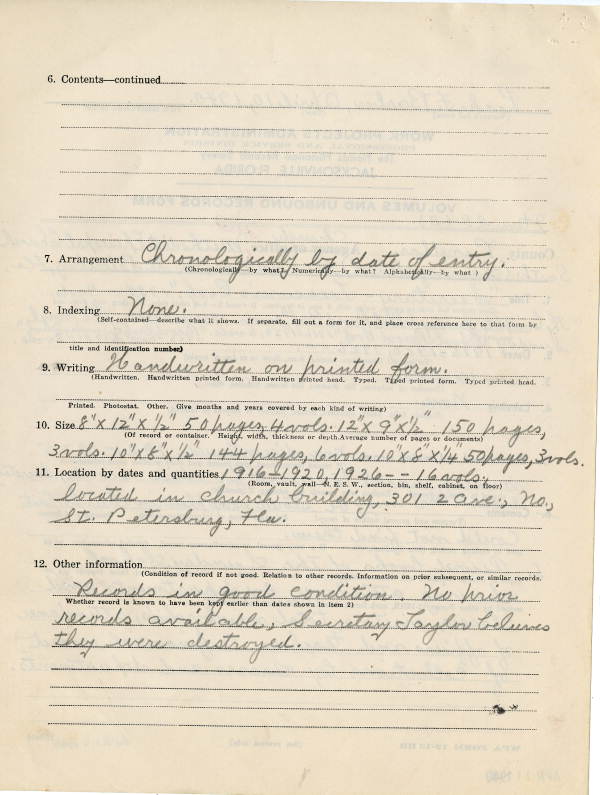 6. Contents—continued
7. Arrangement Chronologically by date of entry.
(Chronologically—by what? Numerically—by what? Alphabetically—by what )
8. Indexing None.
(Self-contained—describe what it shows. If separate, fill out a form for it, and place cross reference here to that form by
title and identification number)
9. Writing Handwritten on printed form.
(Handwritten. Handwritten printed form. Handwritten printed head. Typed. Typed printed form. Typed printed head.
Printed. Photostat. Other. Give months and years covered by each kind of writing)
10. Size 8" x 12" x ½" 50 pages, 4 vols. 12" x 9" x ½" 150 pages,
(Of record or container. Height, width, thickness or depth. Average number of pages or documents)
3 vols. 10" x 8" x ½" 144 pages, 6 vols. 10" x 8" x ¼" 50 pages, 3 vols.
11. Location by dates and quantities 1916-1920, 1926-- 16 vols.,
(Room, vault, wall—N. E. S. W., section, bin, shelf, cabinet, on floor)
located in church building, 301 2 Ave., No.,
St. Petersburg, Fla.
12. Other information
(Condition of record if not good. Relation to other records. Information on prior subsequent, or similar records.
Records in good condition. No prior
Whether record is known to have been kept earlier than dates shown in item 2)
records available, Secretary Taylor believes
they were destroyed.